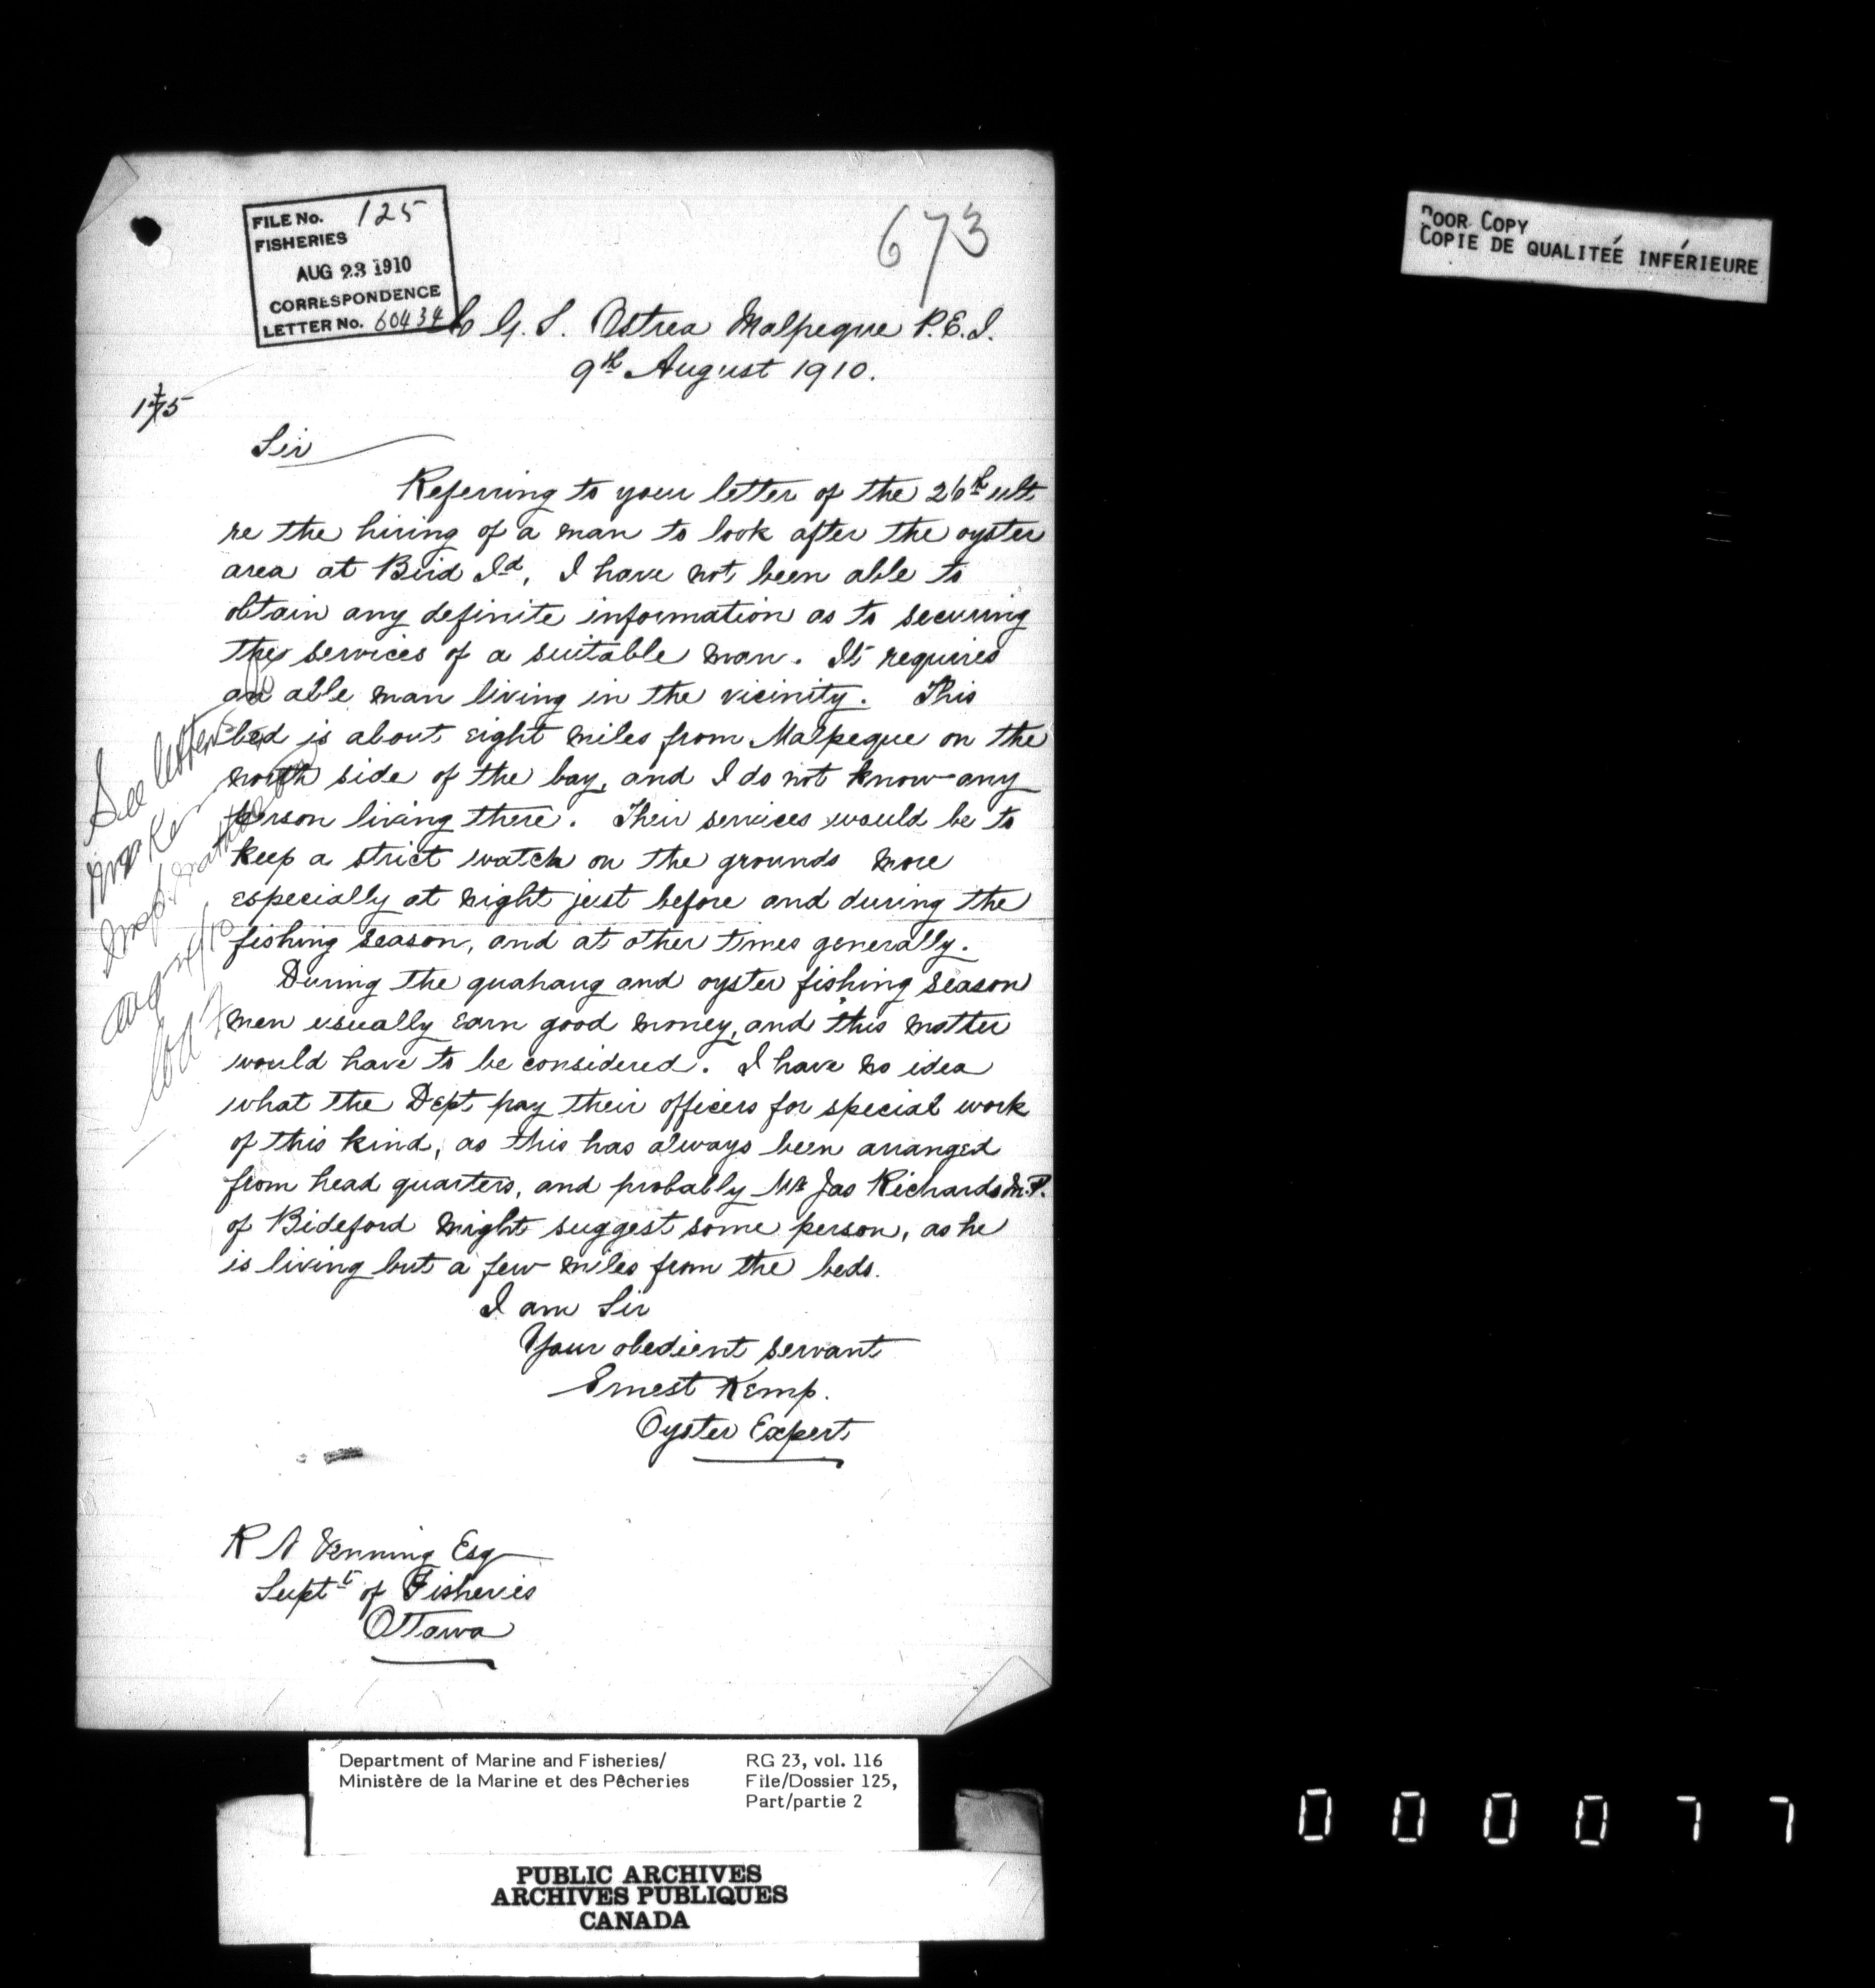 FILE No. 125
FISHERIES
AUG 23 1910
CORRESPONDENCE
LETTER No. 60434
673
POOR COPY
COPIE DE QUALITEÉ INFÉRIEURE
C. G. S. Ostrea Malpeque P.E.I.
9th August 1910.
Sir
Referring to your letter of the 26th ult
re the hiring of a man to look after the oyster
area at Bird Id, I have not been able to
obtain any definite information as to securing
the services of a suitable man. It requires
an able man living in the vicinity. This
bed is about eight miles from Malpeque on the
north side of the bay, and I do not know any
person living there. Their services would be to
keep a strict watch on the grounds more
especially at night just before and during the
fishing season, and at other times generally.
During the quahaug and oyster fishing season
men usually earn good money, and this matter
would have to be considered. I have no idea
what the Dept pay their officers for special work
of this kind, as this has always been arranged
from head quarters, and probably Mr Jas Richards M.P.
of Bideford might suggest some person, as he
is living but a few miles from the beds.
I am Sir
Your obedient servant
Ernest Kemp.
Oyster Expert
See letter
R N Venning Esq
Supt of Fisheries
Ottawa
Department of Marine and Fisheries/
Ministère de la Marine et des Pêcheries
RG 23, vol. 116
File/Dossier 125,
Part/partie 2
PUBLIC ARCHIVES
ARCHIVES PUBLIQUES
CANADA
000077